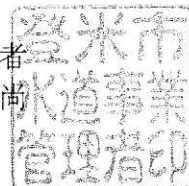 者
尚
登米市
水道事業
管理者印